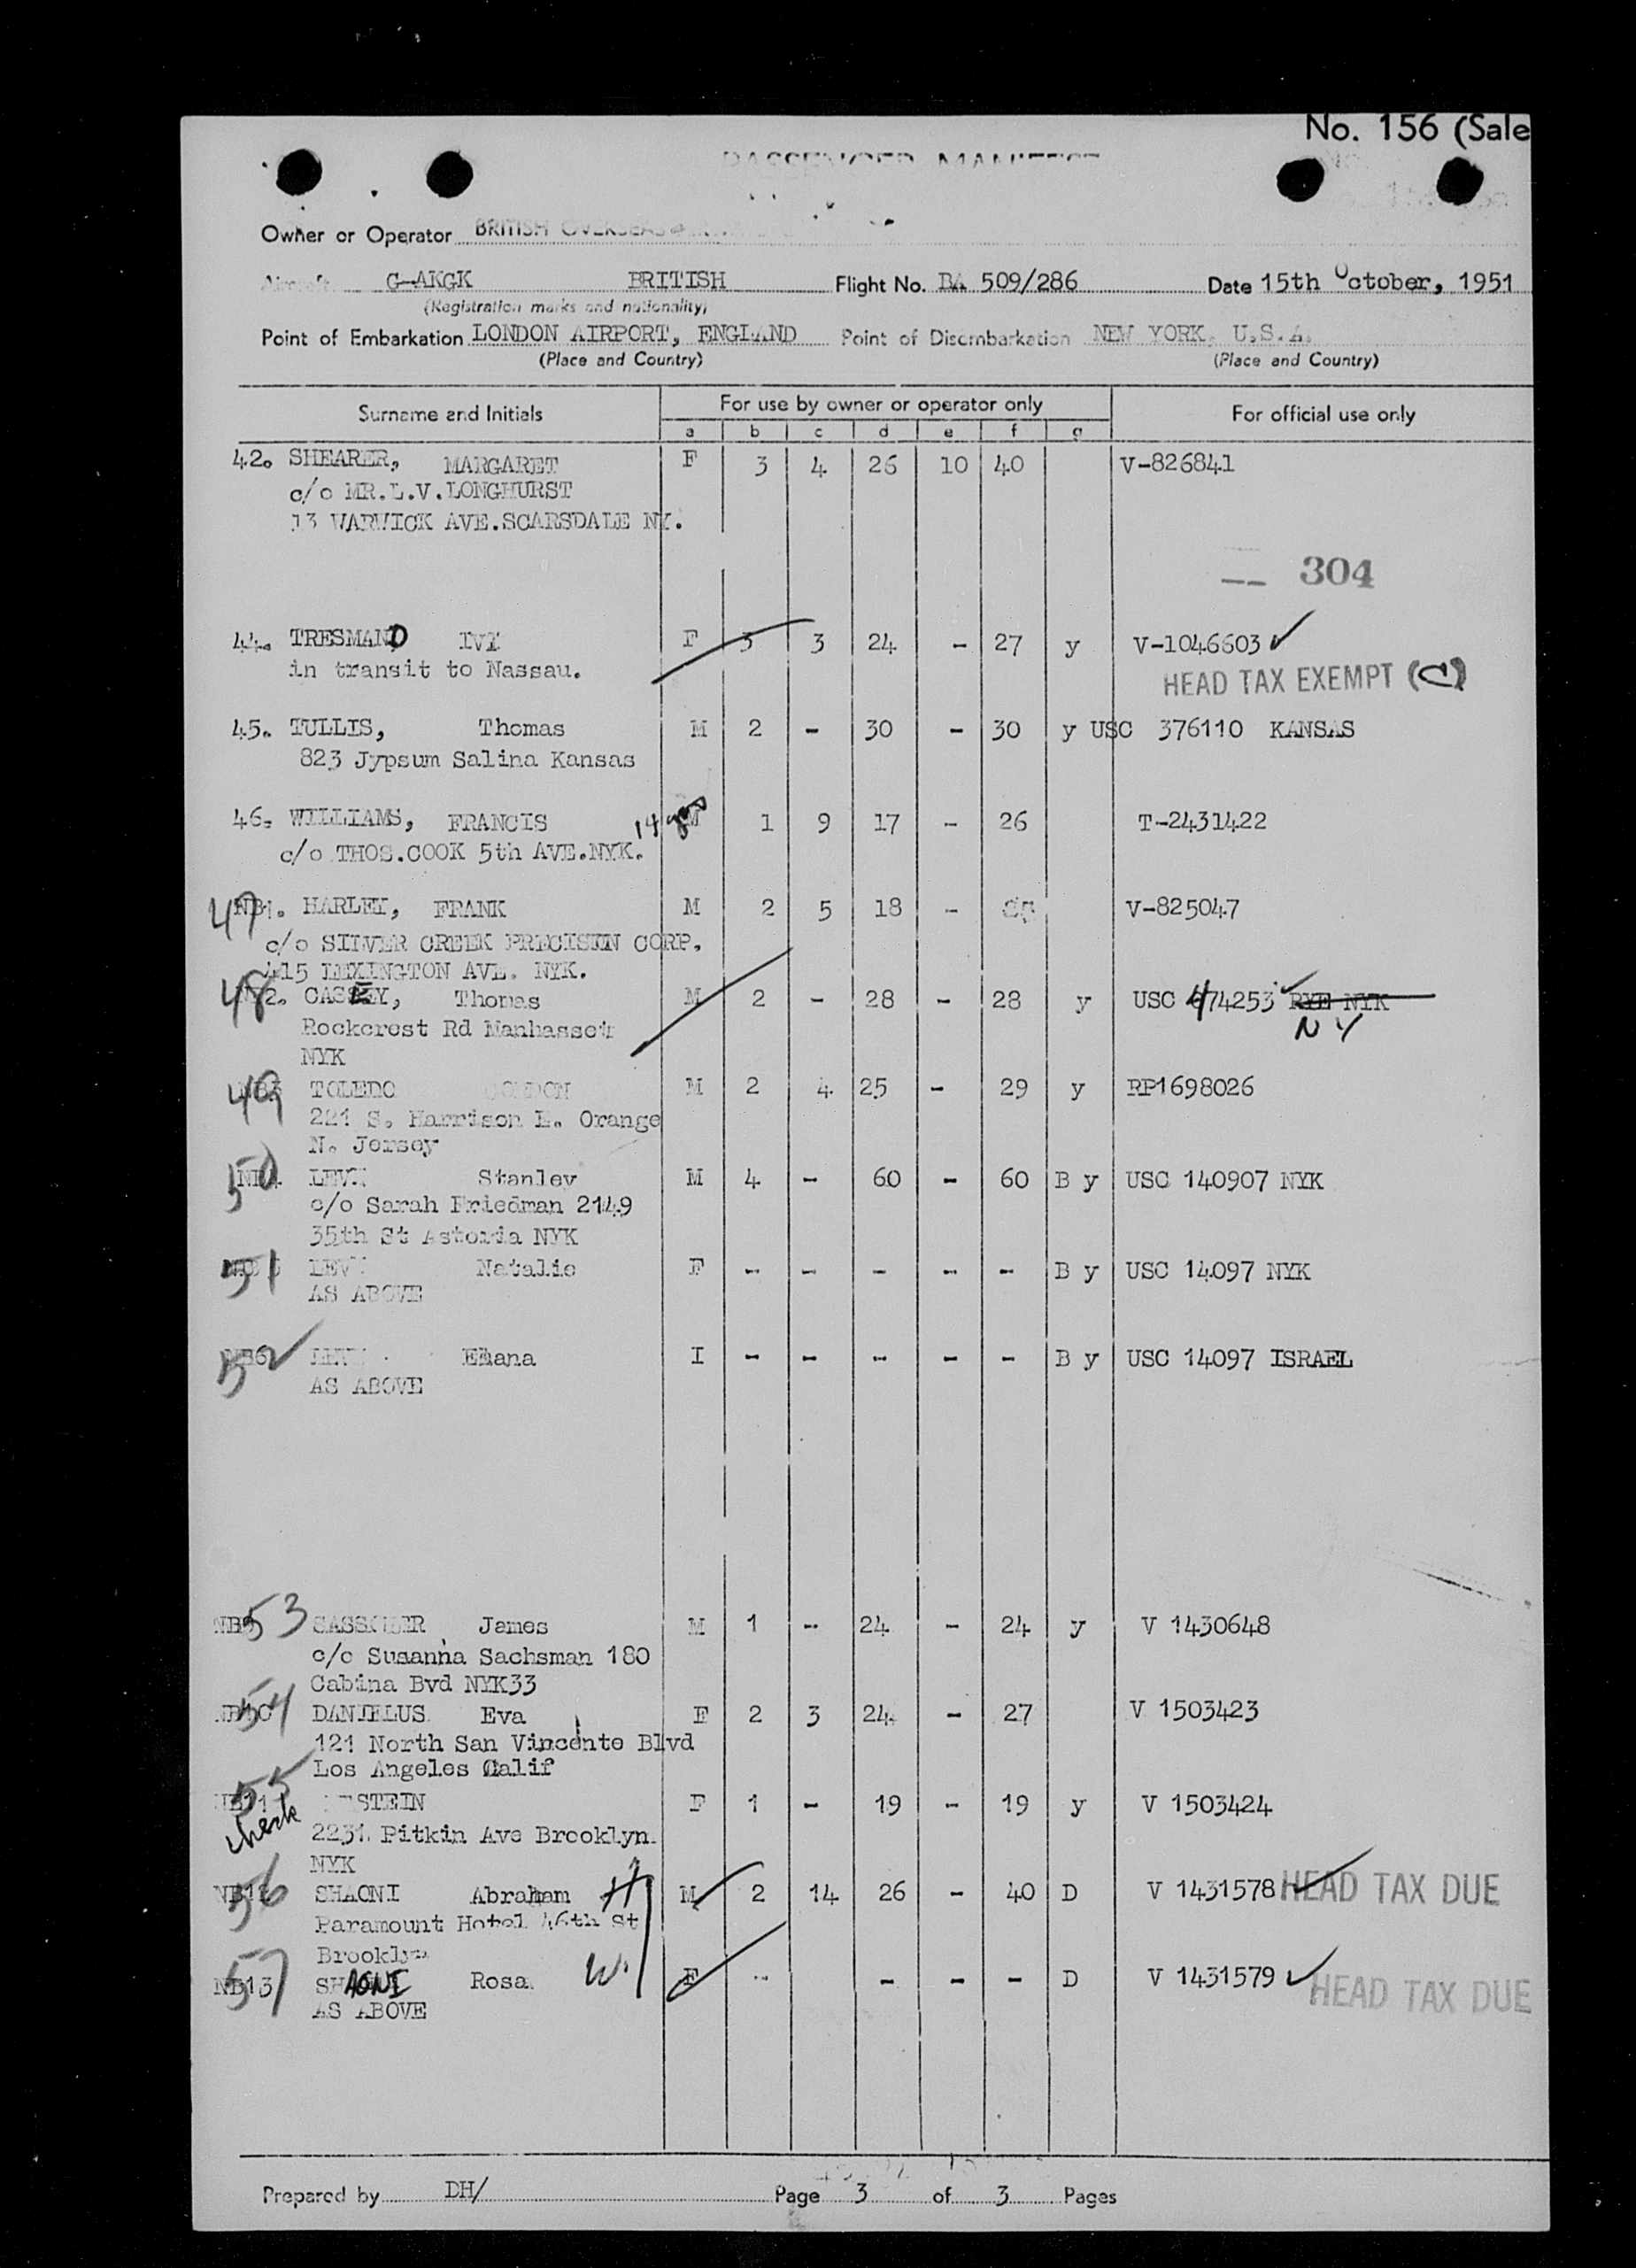 No. 156 (Sale
PASSENGER MANIFEST
Owner or Operator BRITISH OVERSEAS
Aircraft G-AKGK BRITISH Flight No. BA 509/286 Date 15th October, 1951
(Registration marks and nationality)
Point of Embarkation LONDON AIRPORT, ENGLAND Point of Disembarkation NEW YORK, U.S.A.
(Place and Country) (Place and Country)
Surname and Initials For use by owner or operator only For official use only
a b c d e f g
42. SHEARER, MARGARET F 3 4 26 10 40 V-826841
c/o MR.L.V.LONGHURST
13 WARWICK AVE.SCARSDALE NY.
304
44. TRESMAND IVY F 3 3 24 - 27 y V-1046603 ✓
in transit to Nassau. HEAD TAX EXEMPT (C)
45. TULLIS, Thomas M 2 - 30 - 30 y USC 376110 KANSAS
823 Jypsum Salina Kansas
46. WILLIAMS, FRANCIS 14 yrs M 1 9 17 - 26 T-2431422
c/o THOS.COOK 5th AVE.NYK.
47 NB1. HARLEY, FRANK M 2 5 18 - V-825047
c/o SILVER CREEK PRECISIN CORP.
415 LEXINGTON AVE. NYK.
48 2. CASEY, Thomas M 2 - 28 - 28 y USC 474253 ✓ RYE NYK
Rockcrest Rd Manhasset N Y
NYK
49 TOLEDO M 2 4 25 - 29 y RP1698026
221 S. Harrison E. Orange
N. Jersey
50 LEVY Stanley M 4 - 60 - 60 B y USC 140907 NYK
c/o Sarah Friedman 2149
35th St Astoria NYK
51 LEV Natalie F - - - - - B y USC 14097 NYK
AS ABOVE
52 Elana I - - - - - B y USC 14097 ISRAEL
AS ABOVE
53 James M 1 - 24 - 24 y V 1430648
c/o Susanna Sachsman 180
Cabina Bvd NYK33
54 DANIELUS Eva F 2 3 24 - 27 V 1503423
121 North San Vincente Blvd
Los Angeles Calif
55 STEIN F 1 - 19 - 19 y V 1503424
check 2231 Pitkin Ave Brooklyn
NYK
56 NB12 SHAONI Abraham H M 2 14 26 - 40 D V 1431578 HEAD TAX DUE
Paramount Hotel 46th St
Brooklyn
57 NB13 SHAONI Rosa W. F - - - - D V 1431579 ✓ HEAD TAX DUE
AS ABOVE
Prepared by DH/ Page 3 of 3 Pages